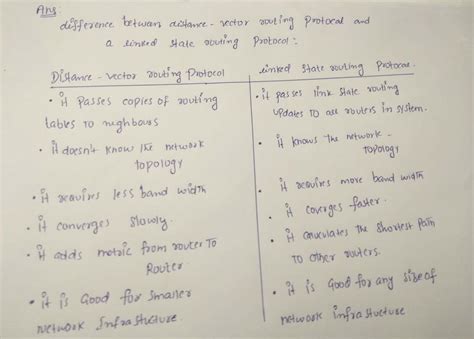 Ans:
difference between distance-vector routing Protocol and
a linked state routing Protocol:
Distance-vector routing Protocol
• it Passes copies of routing
tables to neighbours
• it doesn't know the network
topology
• it requires less band width
• it converges slowly.
• it adds metric from router To
Router
• it is Good for smaller
network infrastucture
linked state routing Protocol
• it passes link state routing
updates TO all routers in system.
• it knows the network-
topology
it requires more band width
• it coverges faster.
• it calculates the shortest Path
TO other routers.
• it is Good for any size of
network infrastucture